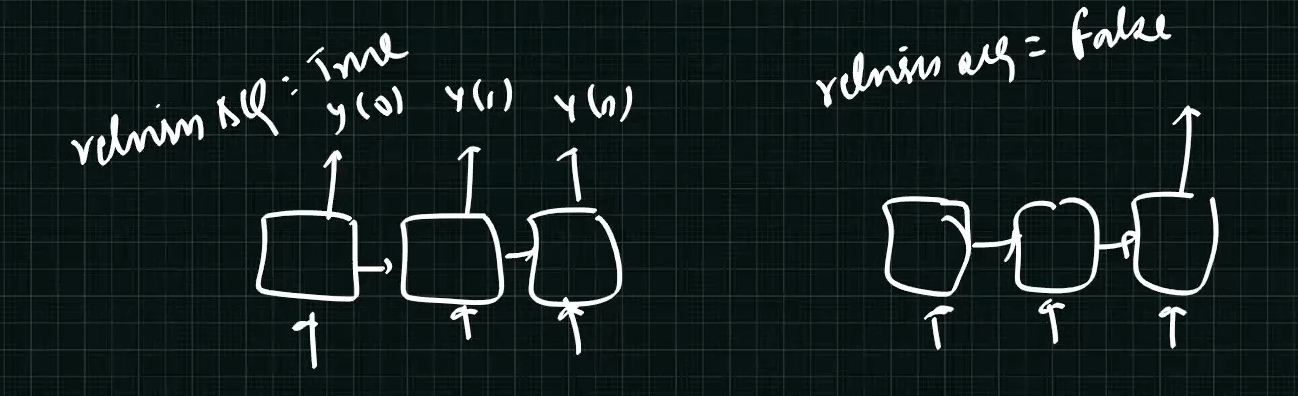 return seq = True
y(0) y(1) y(n)
return seq = False